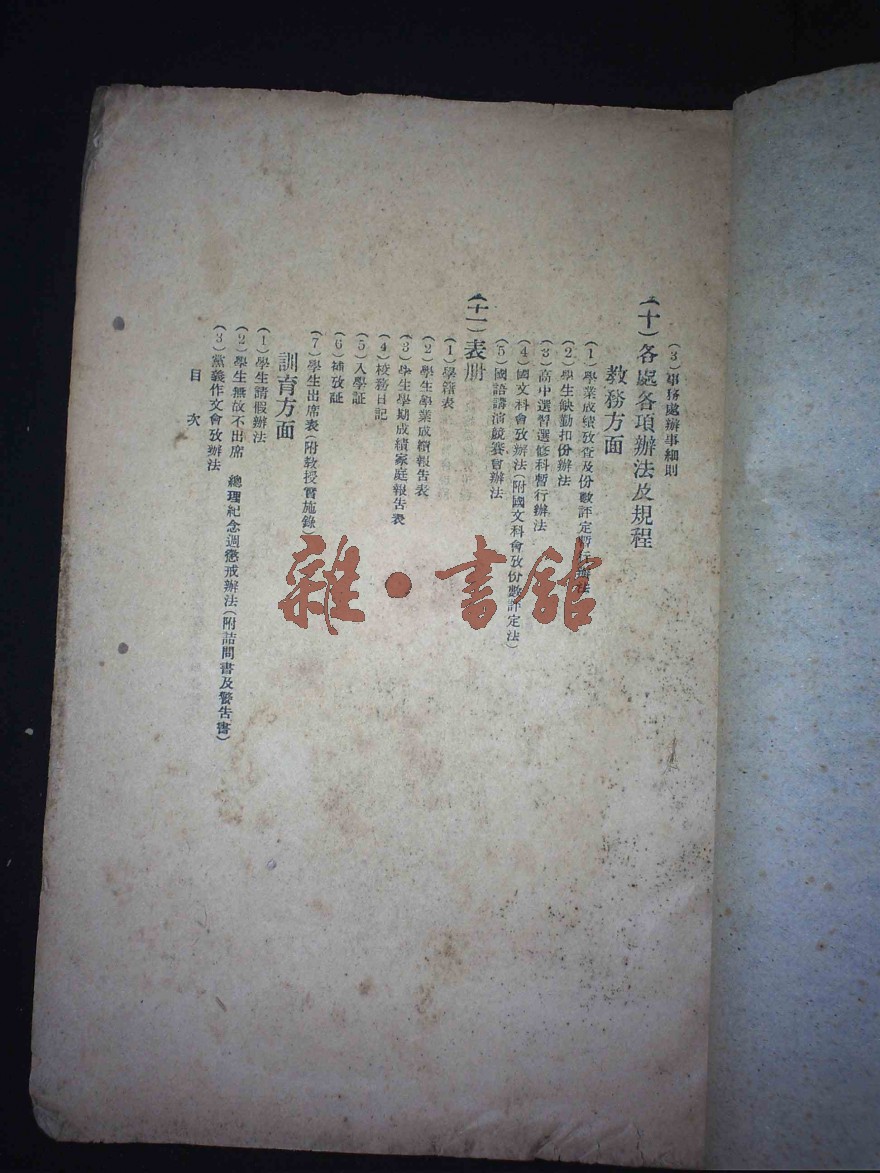 (3)事務處辦事細則
(十)各處各項辦法及規程
教務方面
(1)學業成績攷查及份數評定暫行辦法
(2)學生缺勤扣份辦法
(3)高中選習選修科暫行辦法
(4)國文科會攷辦法(附國文科會攷份數評定法)
(5)國語講演競賽會辦法
(十一)表册
(1)學籍表
(2)學生學業成績報告表
(3)學生學期成績家庭報告表
(4)校務日記
(5)入學証
(6)補攷証
(7)學生出席表(附教授實施錄)
訓育方面
(1)學生請假辦法
(2)學生無故不出席 總理紀念週懲戒辦法(附詰問書及警告書)
(3)黨義作文會攷辦法
目 次
雜·書舘